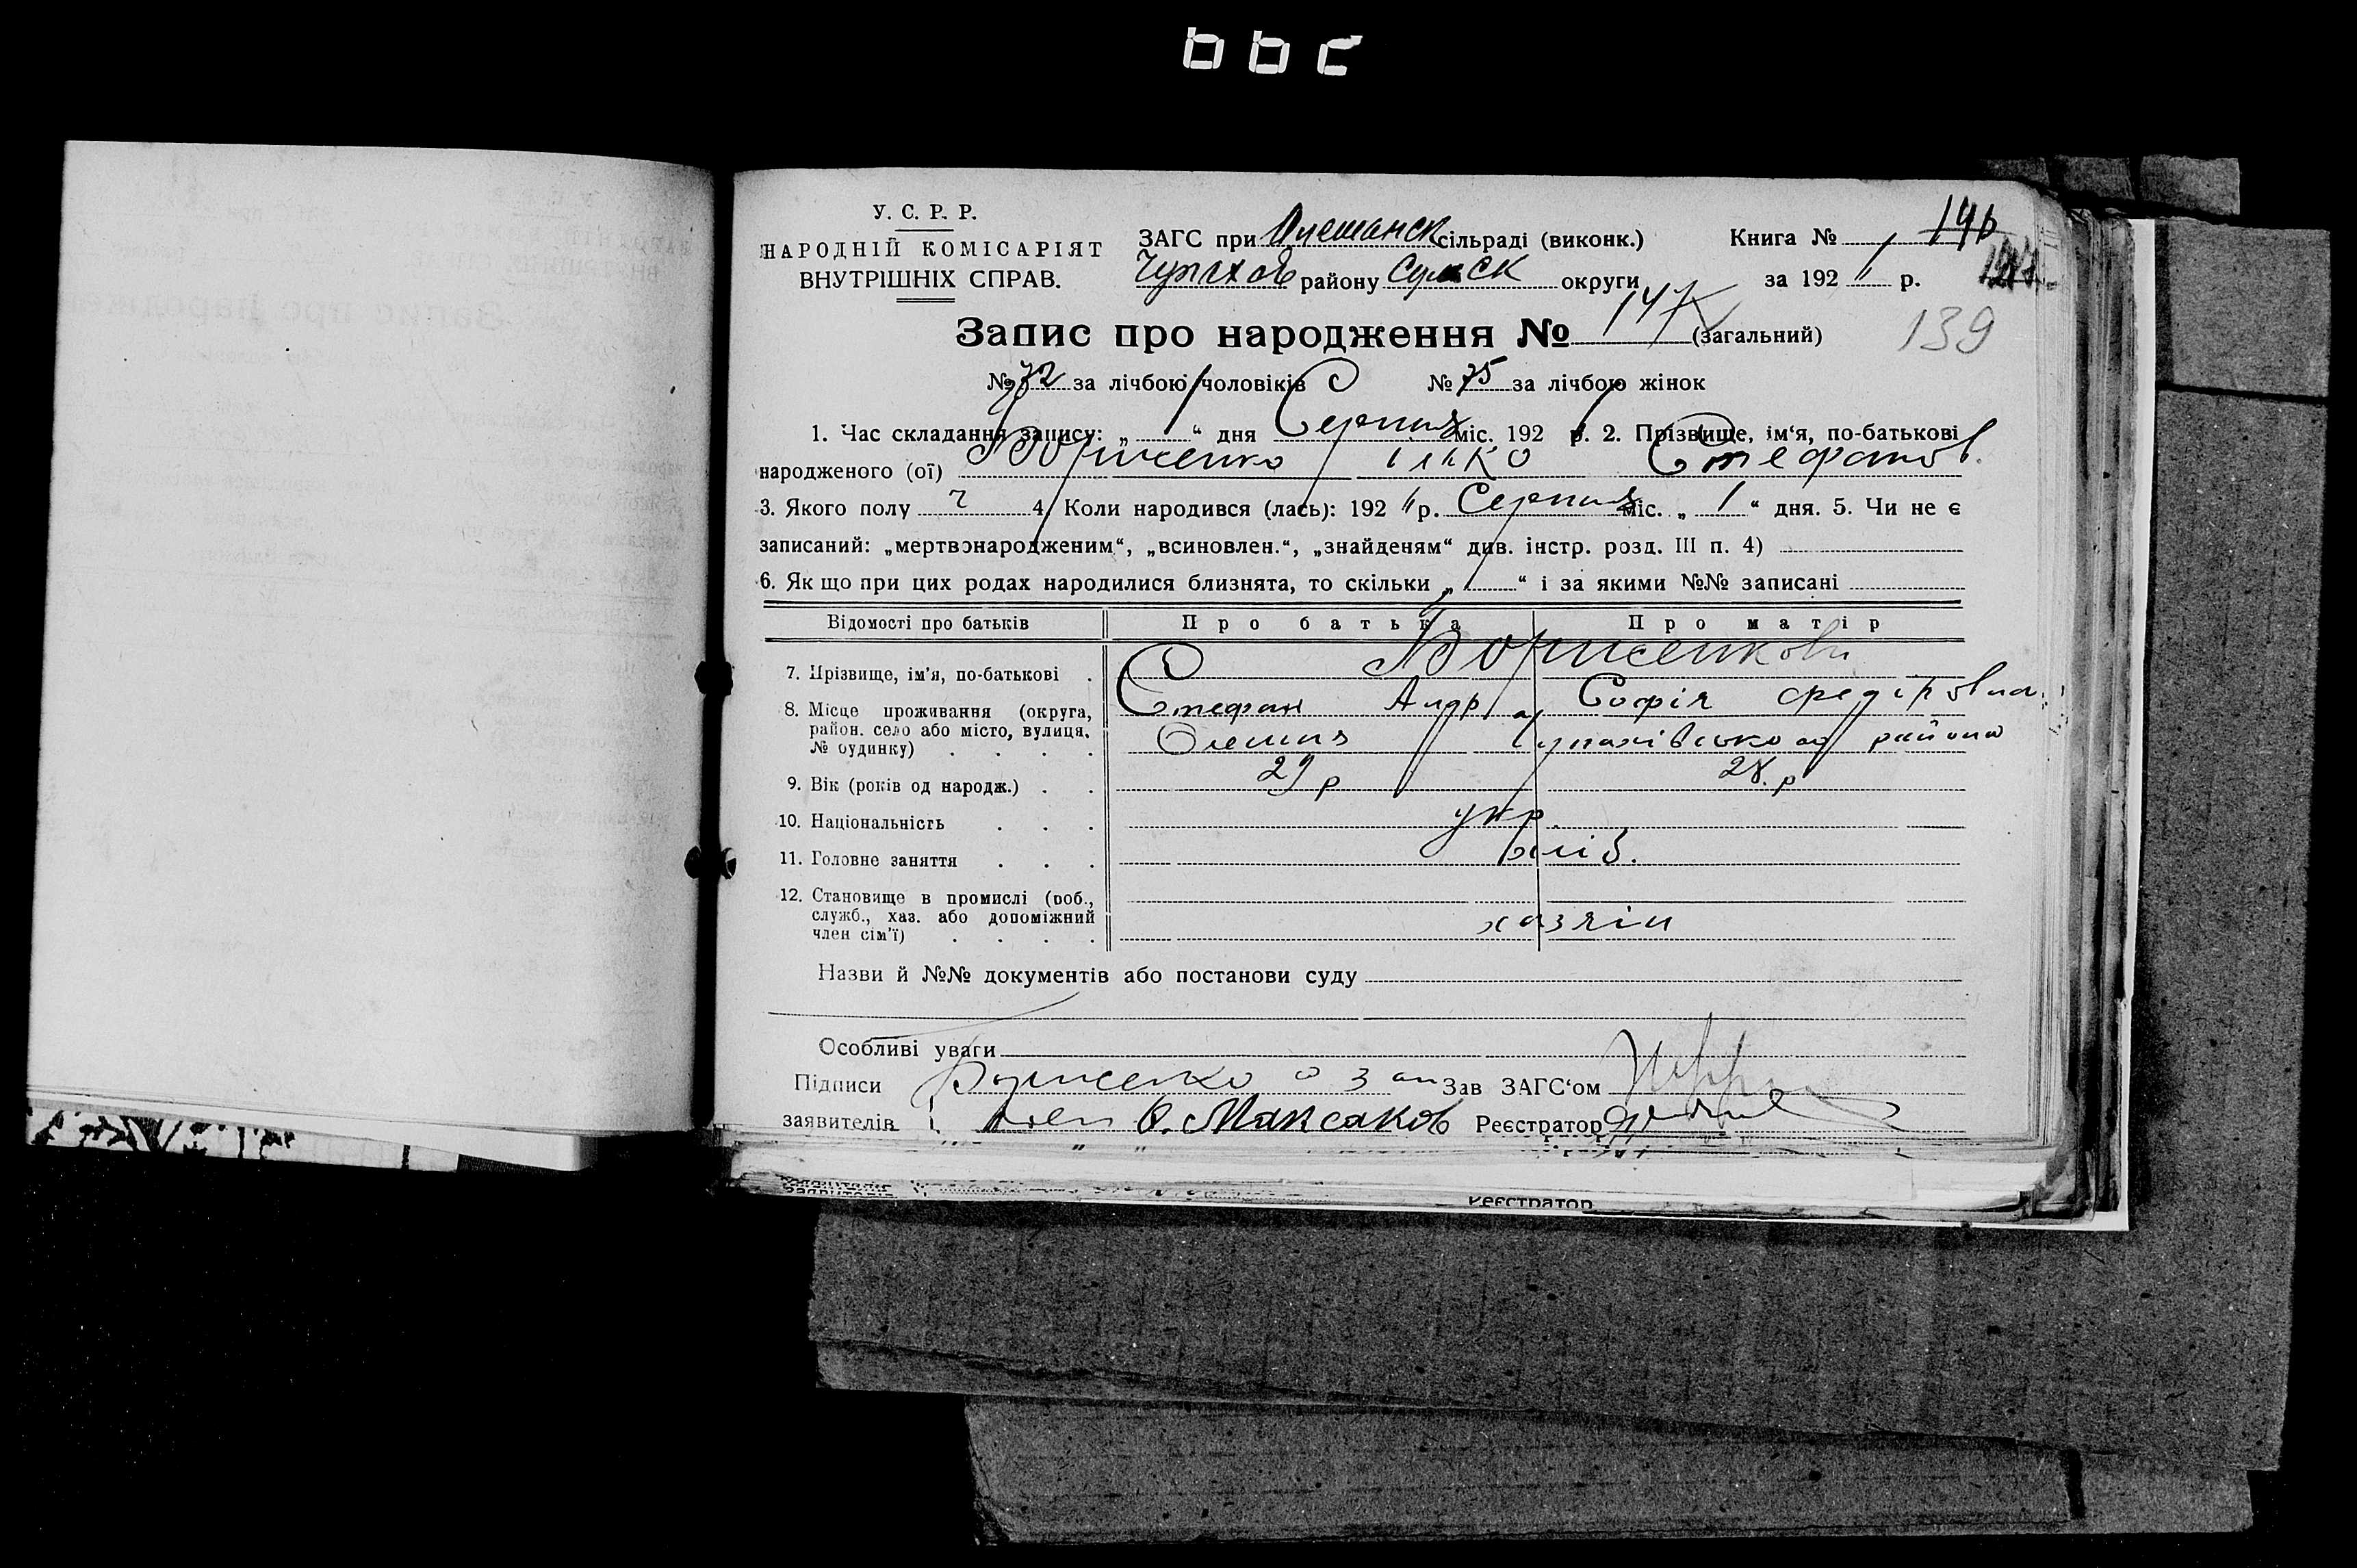 У. С. Р. Р.
НАРОДНІЙ КОМІСАРІЯТ
ВНУТРІШНІХ СПРАВ.
ЗАГС при Олешанск сільраді (виконк.)
Чупахов району Сумск округи
Книга № 146
за 192 р.
139
Запис про народження № 147 (загальний)
№ 72 за лічбою чоловіків № 75 за лічбою жінок
1. Час складання запису: „ “ дня Серпня міс. 192 р. 2. Прізвище, ім‘я, по-батькові
народженого (ої) Ілько Стефанов.
3. Якого полу ч 4. Коли народився (лась): 192 р. Серпня міс. „ 1 “ дня. 5. Чи не є
записаний: „мертвонародженим“, „всиновлен.“, „знайденям“ див. інстр. розд. III п. 4)
6. Як що при цих родах народилися близнята, то скільки „ “ і за якими №№ записані
Відомості про батьків Про батька Про матір
7. Прізвище, ім‘я, по-батькові .
Стефан Андр Софія Федіровна
8. Місце проживання (округа,
район. село або місто, вулиця,
№ будинку) . . . .
Олешня Чупахівського району
9. Вік (років од народж.) . . 29 р 28. р
10. Національність . . . укр.
11. Головне заняття . . . хліб.
12. Становище в промислі (роб.,
служб., хаз. або допоміжний
член сім‘ї) . . . . хазяін
Назви й №№ документів або постанови суду
Особливі уваги
Підписи Зав ЗАГС‘ом
заявителів Максаков Реєстратор
Реєстратор